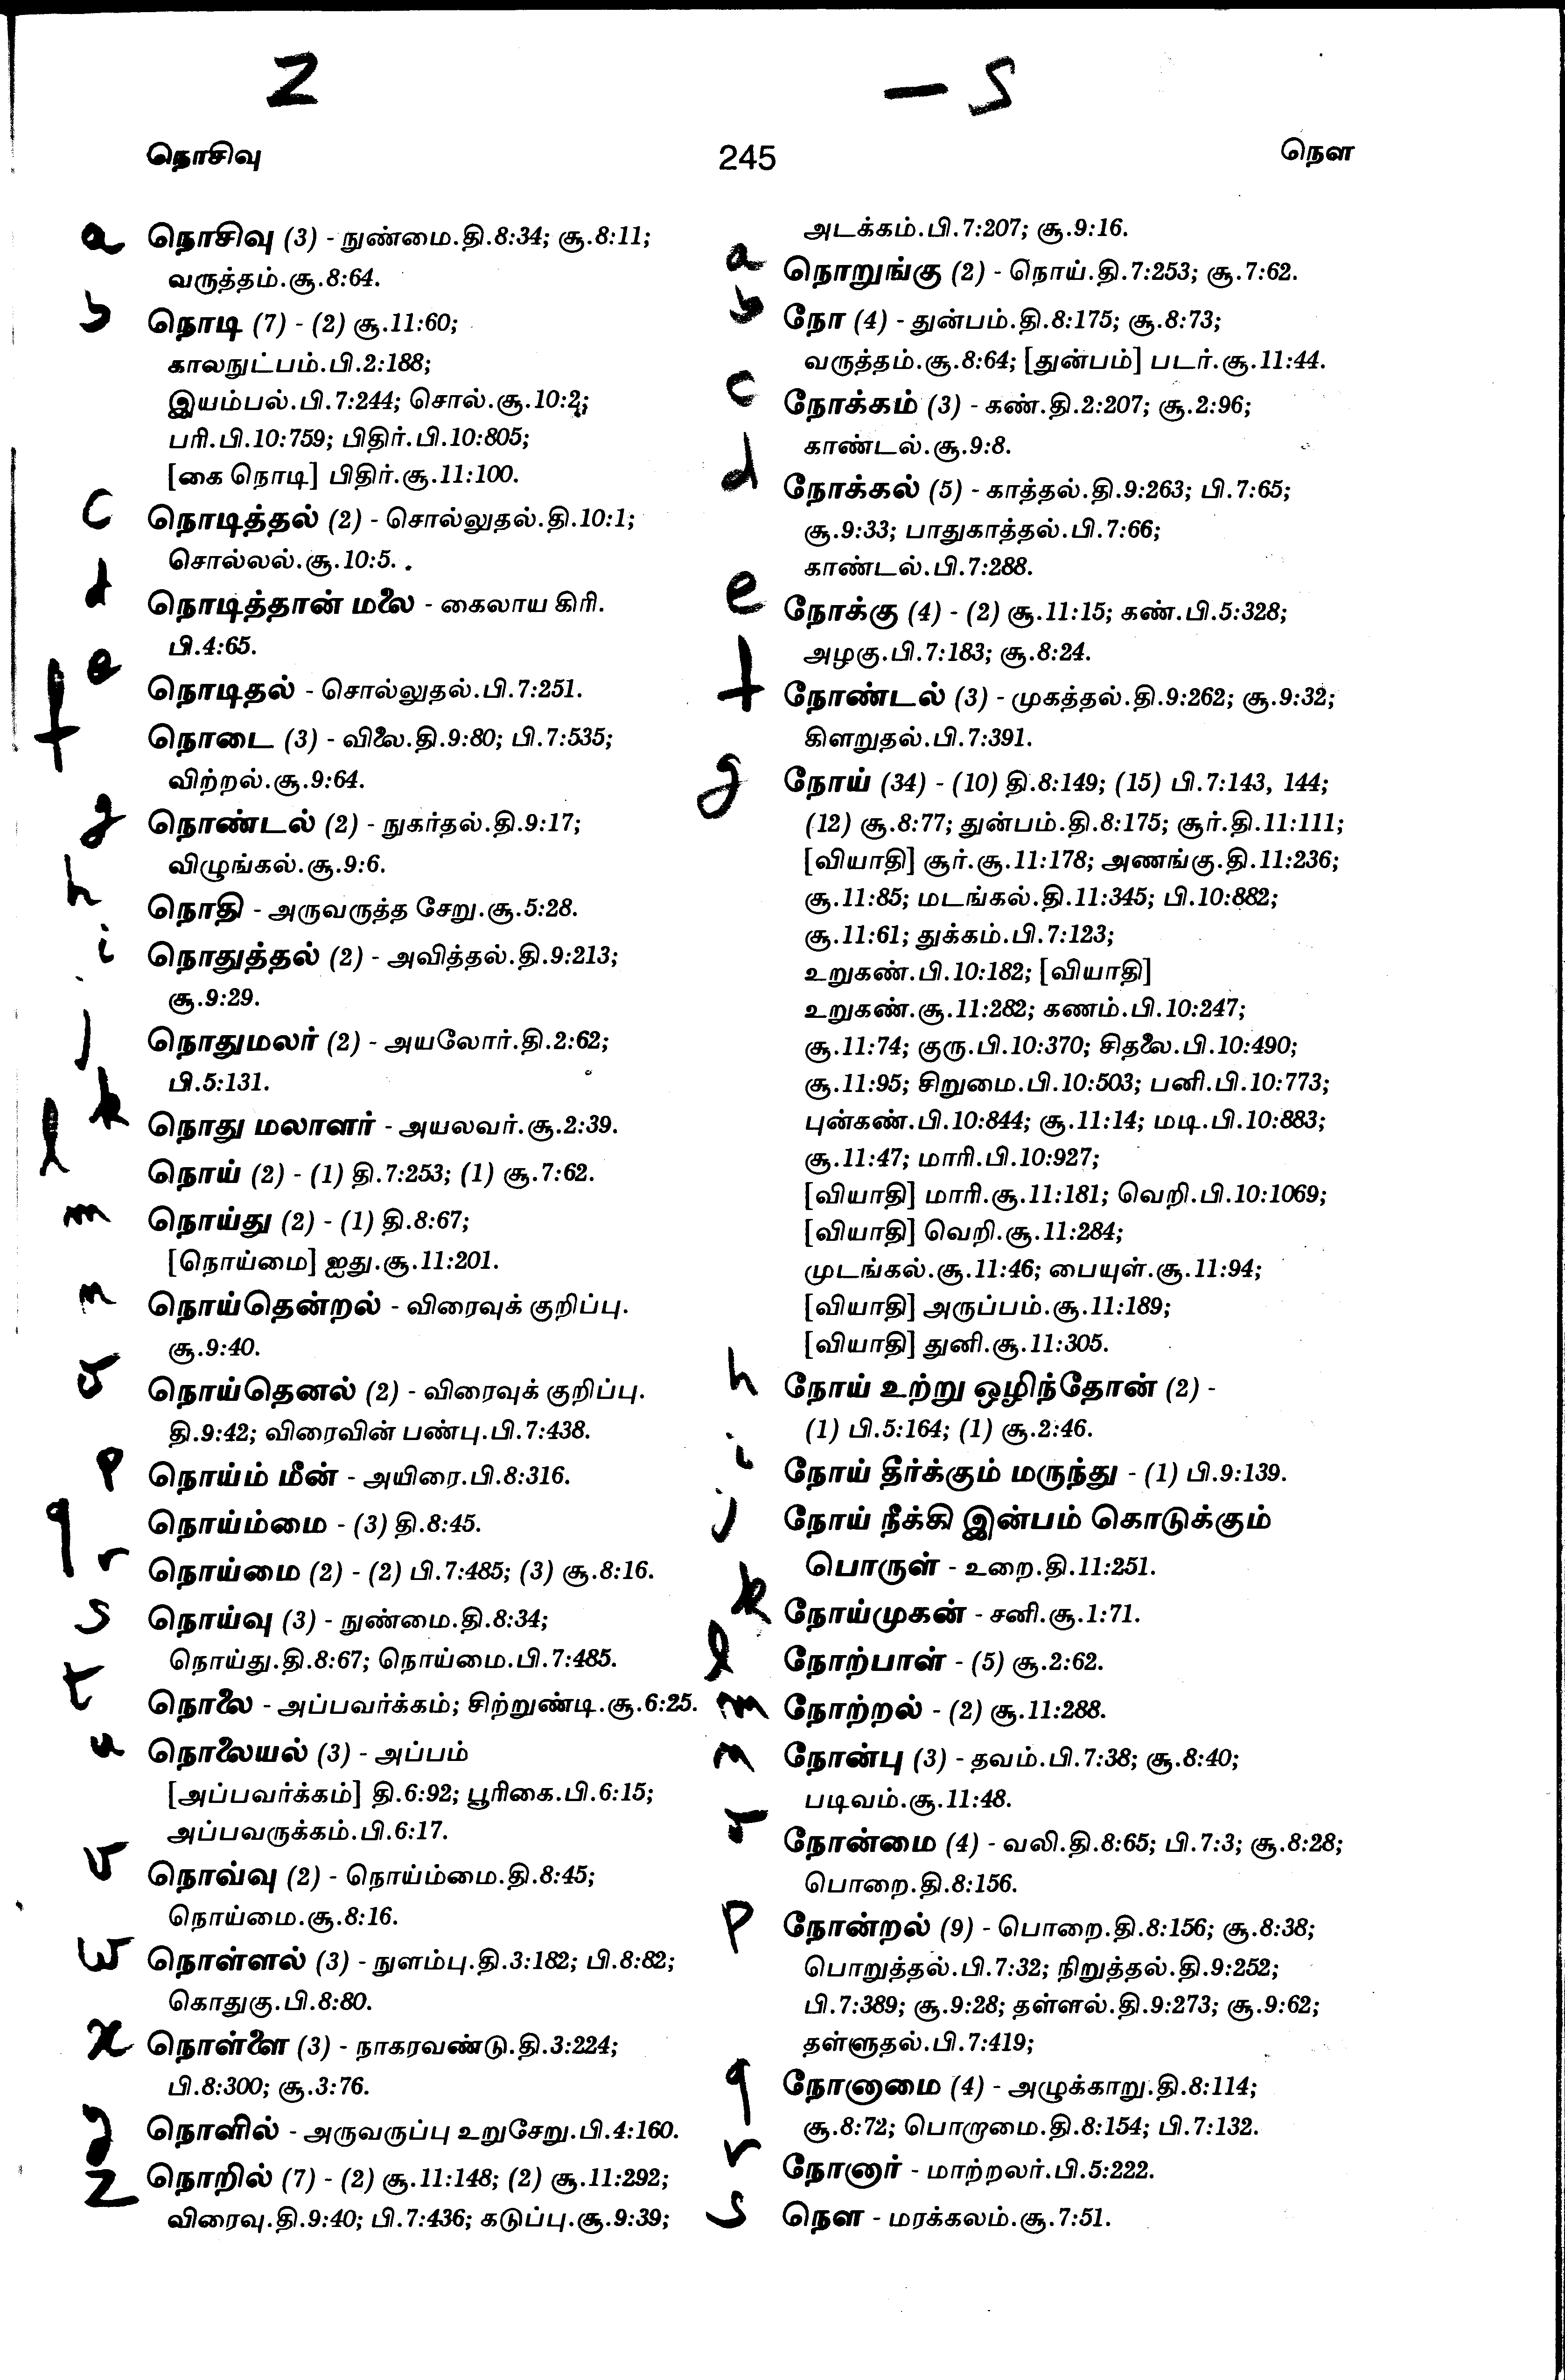 2 - S
நொசிவு 245 நௌ
a நொசிவு (3) - நுண்மை.தி.8:34; சூ.8:11;
வருத்தம்.சூ.8:64.
b நொடி (7) - (2) சூ.11:60;
காலநுட்பம்.பி.2:188;
இயம்பல்.பி.7:244; சொல்.சூ.10:2;
பரி.பி.10:759; பிதிர்.பி.10:805;
[கை நொடி] பிதிர்.சூ.11:100.
c நொடித்தல் (2) - சொல்லுதல்.தி.10:1;
சொல்லல்.சூ.10:5.
d நொடித்தான் மலை - கைலாய கிரி.
பி.4:65.
e நொடிதல் - சொல்லுதல்.பி.7:251.
f நொடை (3) - விலை.தி.9:80; பி.7:535;
விற்றல்.சூ.9:64.
g நொண்டல் (2) - நுகர்தல்.தி.9:17;
விழுங்கல்.சூ.9:6.
h நொதி - அருவருத்த சேறு.சூ.5:28.
i நொதுத்தல் (2) - அவித்தல்.தி.9:213;
சூ.9:29.
j நொதுமலர் (2) - அயலோர்.தி.2:62;
பி.5:131.
k நொது மலாளர் - அயலவர்.சூ.2:39.
l நொய் (2) - (1) தி.7:253; (1) சூ.7:62.
m நொய்து (2) - (1) தி.8:67;
[நொய்மை] ஐது.சூ.11:201.
n நொய்தென்றல் - விரைவுக் குறிப்பு.
சூ.9:40.
o நொய்தெனல் (2) - விரைவுக் குறிப்பு.
தி.9:42; விரைவின் பண்பு.பி.7:438.
p நொய்ம் மீன் - அயிரை.பி.8:316.
q நொய்ம்மை - (3) தி.8:45.
r நொய்மை (2) - (2) பி.7:485; (3) சூ.8:16.
s நொய்வு (3) - நுண்மை.தி.8:34;
நொய்து.தி.8:67; நொய்மை.பி.7:485.
t நொலை - அப்பவர்க்கம்; சிற்றுண்டி.சூ.6:25.
u நொலையல் (3) - அப்பம்
[அப்பவர்க்கம்] தி.6:92; பூரிகை.பி.6:15;
அப்பவருக்கம்.பி.6:17.
v நொவ்வு (2) - நொய்ம்மை.தி.8:45;
நொய்மை.சூ.8:16.
w நொள்ளல் (3) - நுளம்பு.தி.3:182; பி.8:82;
கொதுகு.பி.8:80.
x நொள்ளை (3) - நாகரவண்டு.தி.3:224;
பி.8:300; சூ.3:76.
y நொளில் - அருவருப்பு உறுசேறு.பி.4:160.
z நொறில் (7) - (2) சூ.11:148; (2) சூ.11:292;
விரைவு.தி.9:40; பி.7:436; கடுப்பு.சூ.9:39;
அடக்கம்.பி.7:207; சூ.9:16.
a நொறுங்கு (2) - நொய்.தி.7:253; சூ.7:62.
b நோ (4) - துன்பம்.தி.8:175; சூ.8:73;
வருத்தம்.சூ.8:64; [துன்பம்] படர்.சூ.11:44.
c நோக்கம் (3) - கண்.தி.2:207; சூ.2:96;
காண்டல்.சூ.9:8.
d நோக்கல் (5) - காத்தல்.தி.9:263; பி.7:65;
சூ.9:33; பாதுகாத்தல்.பி.7:66;
காண்டல்.பி.7:288.
e நோக்கு (4) - (2) சூ.11:15; கண்.பி.5:328;
அழகு.பி.7:183; சூ.8:24.
f நோண்டல் (3) - முகத்தல்.தி.9:262; சூ.9:32;
கிளறுதல்.பி.7:391.
g நோய் (34) - (10) தி.8:149; (15) பி.7:143, 144;
(12) சூ.8:77; துன்பம்.தி.8:175; சூர்.தி.11:111;
[வியாதி] சூர்.சூ.11:178; அணங்கு.தி.11:236;
சூ.11:85; மடங்கல்.தி.11:345; பி.10:882;
சூ.11:61; துக்கம்.பி.7:123;
உறுகண்.பி.10:182; [வியாதி]
உறுகண்.சூ.11:282; கணம்.பி.10:247;
சூ.11:74; குரு.பி.10:370; சிதலை.பி.10:490;
சூ.11:95; சிறுமை.பி.10:503; பனி.பி.10:773;
புன்கண்.பி.10:844; சூ.11:14; மடி.பி.10:883;
சூ.11:47; மாரி.பி.10:927;
[வியாதி] மாரி.சூ.11:181; வெறி.பி.10:1069;
[வியாதி] வெறி.சூ.11:284;
முடங்கல்.சூ.11:46; பையுள்.சூ.11:94;
[வியாதி] அருப்பம்.சூ.11:189;
[வியாதி] துனி.சூ.11:305.
h நோய் உற்று ஒழிந்தோன் (2) -
(1) பி.5:164; (1) சூ.2:46.
i நோய் தீர்க்கும் மருந்து - (1) பி.9:139.
j நோய் நீக்கி இன்பம் கொடுக்கும்
பொருள் - உறை.தி.11:251.
k நோய்முகன் - சனி.சூ.1:71.
l நோற்பாள் - (5) சூ.2:62.
m நோற்றல் - (2) சூ.11:288.
n நோன்பு (3) - தவம்.பி.7:38; சூ.8:40;
படிவம்.சூ.11:48.
o நோன்மை (4) - வலி.தி.8:65; பி.7:3; சூ.8:28;
பொறை.தி.8:156.
p நோன்றல் (9) - பொறை.தி.8:156; சூ.8:38;
பொறுத்தல்.பி.7:32; நிறுத்தல்.தி.9:252;
பி.7:389; சூ.9:28; தள்ளல்.தி.9:273; சூ.9:62;
தள்ளுதல்.பி.7:419;
q நோனாமை (4) - அழுக்காறு.தி.8:114;
சூ.8:72; பொறாமை.தி.8:154; பி.7:132.
r நோனார் - மாற்றலர்.பி.5:222.
s நௌ - மரக்கலம்.சூ.7:51.